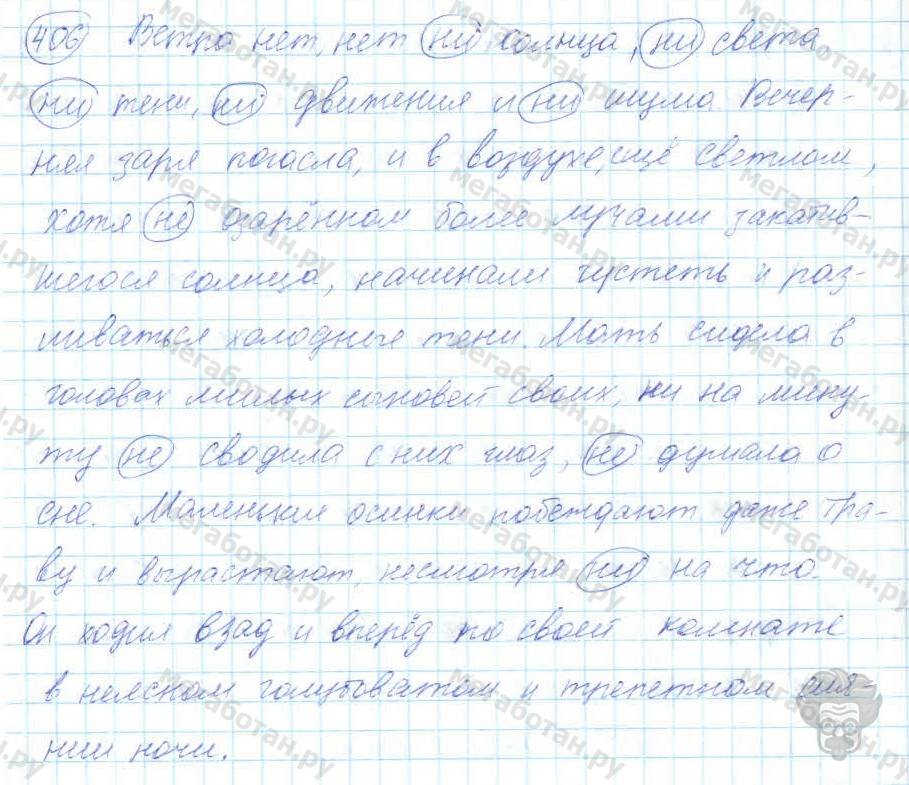 406 Ветра нет, нет ни солнца, ни света,
ни тени, ни движения и ни шума. Вечер-
няя заря погасла, и в воздухе, ещё светлом,
хотя не озарённом более лучами закатив-
шегося солнца, начинали густеть и раз-
ливаться холодные тени. Мать сидела в
головах милых сыновей своих, ни на мину-
ту не сводила с них глаз, не думала о
сне. Маленькие осинки побеждают даже тра-
ву и вырастают, несмотря ни на что.
Он ходил взад и вперёд по своей комнате
в неясном голубоватом и трепетном сия-
нии ночи.
мегаботан.ру